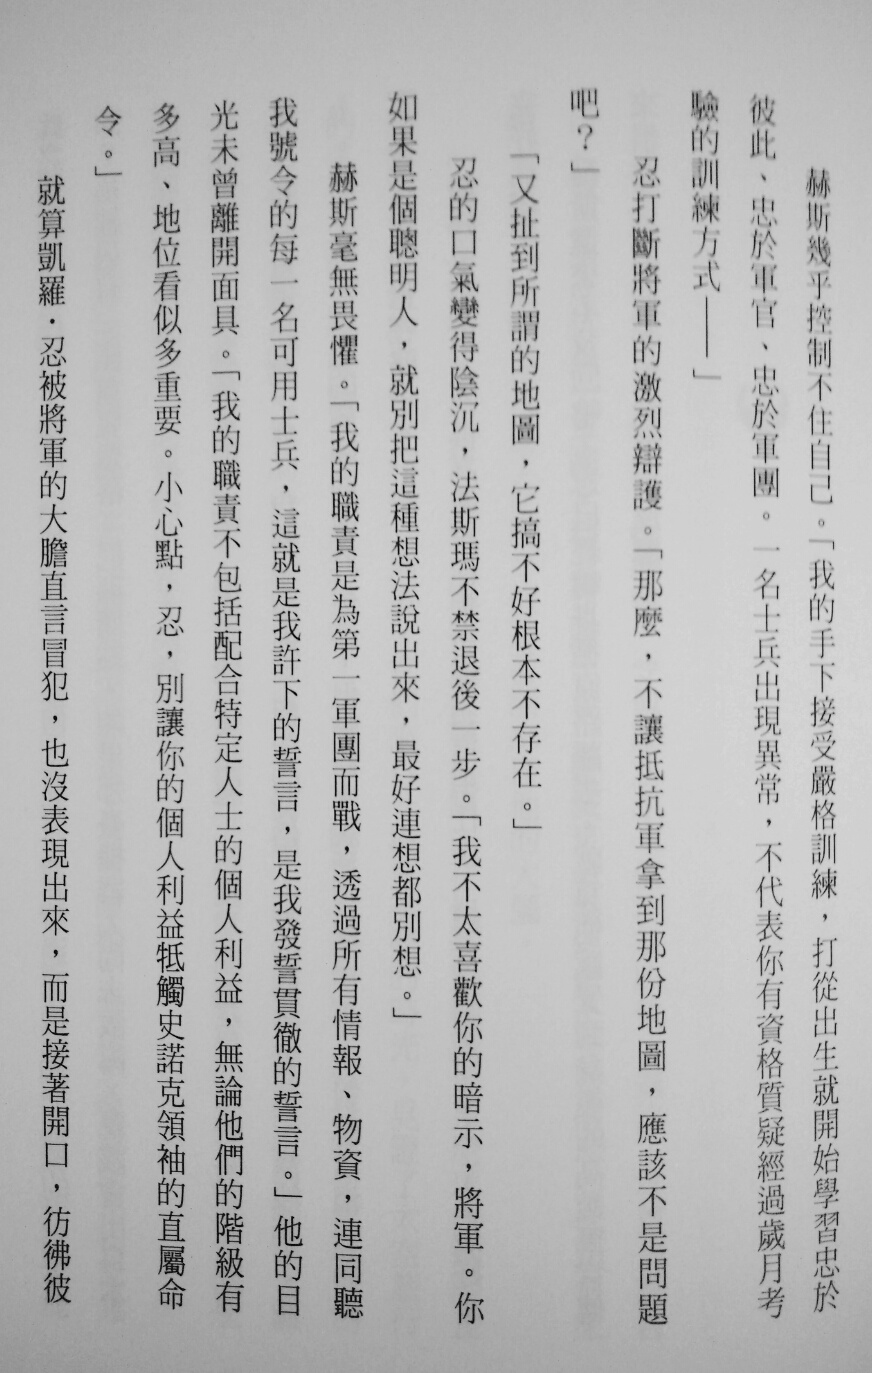 赫斯幾乎控制不住自己。「我的手下接受嚴格訓練，打從出生就開始學習忠於
彼此、忠於軍官、忠於軍團。一名士兵出現異常，不代表你有資格質疑經過歲月考
驗的訓練方式——」
忍打斷將軍的激烈辯護。「那麼，不讓抵抗軍拿到那份地圖，應該不是問題
吧？」
「又扯到所謂的地圖，它搞不好根本不存在。」
忍的口氣變得陰沉，法斯瑪不禁退後一步。「我不太喜歡你的暗示，將軍。你
如果是個聰明人，就別把這種想法說出來，最好連想都別想。」
赫斯毫無畏懼。「我的職責是為第一軍團而戰，透過所有情報、物資，連同聽
我號令的每一名可用士兵，這就是我許下的誓言，是我發誓貫徹的誓言。」他的目
光未曾離開面具。「我的職責不包括配合特定人士的個人利益，無論他們的階級有
多高、地位看似多重要。小心點，忍，別讓你的個人利益牴觸史諾克領袖的直屬命
令。」
就算凱羅·忍被將軍的大膽直言冒犯，也沒表現出來，而是接著開口，彷彿彼